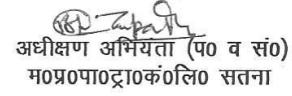 अधीक्षण अभियंता (प० व सं०)
म०प्र०पा०ट्रा०कं०लि० सतना